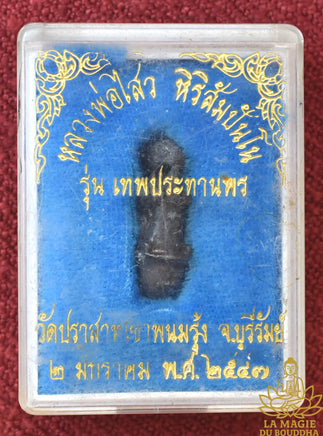 หลวงพ่อไสว หิริสัมปันโน
รุ่น เทพประทานพร
วัดปราสาทเขาพนมรุ้ง จ.บุรีรัมย์
๒ มกราคม พ.ศ.๒๕๔๗
LA MAGIE
DU BOUDDHA